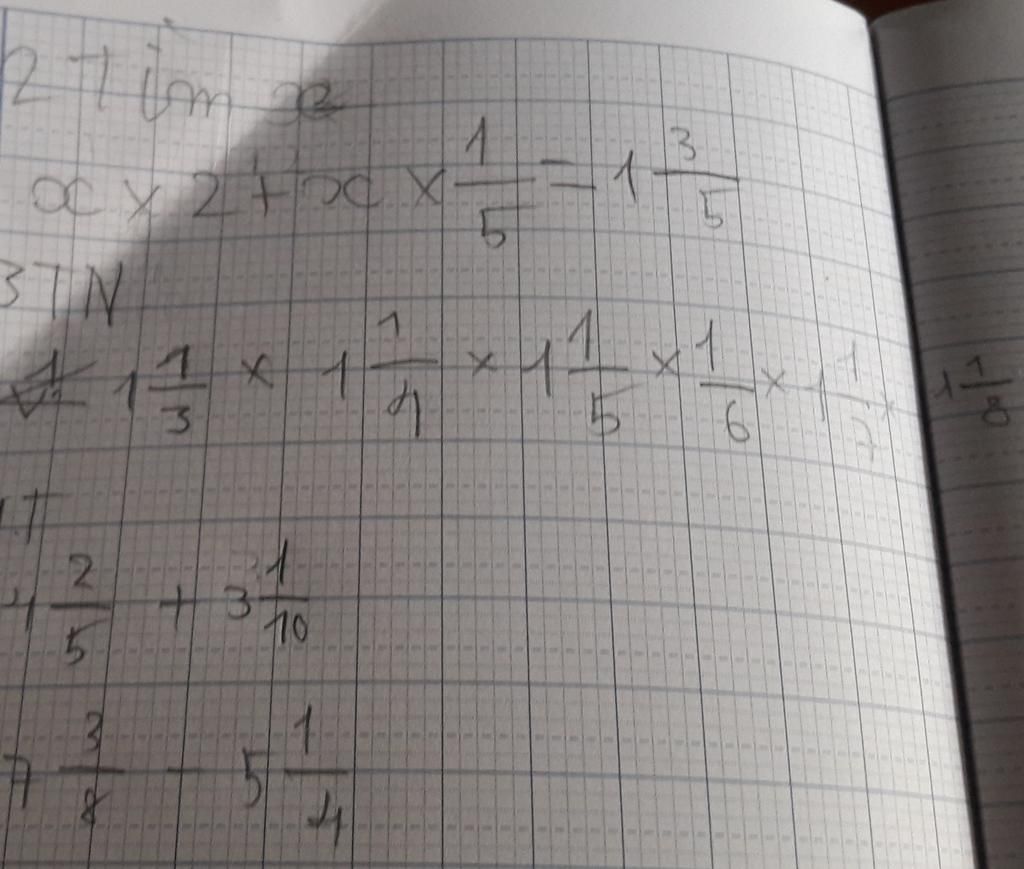 2 Tìm x
x × 2 + x × 1/5 = 1 3/5
3 TN
1 1/3 × 1 1/4 × 1 1/5 × 1/6 × 1 1/7 × 1 1/8
T
4 2/5 + 3 1/10
7 3/8 - 5 1/4